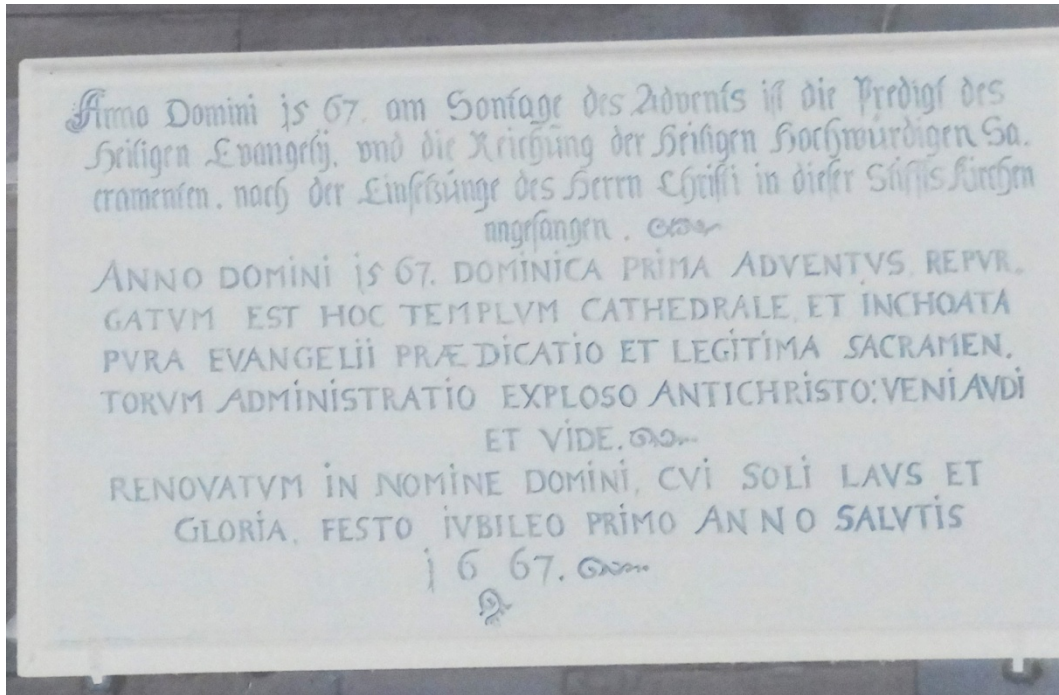 Anno Domini js 67. am Sontage des Advents ist die Predigt des
Heiligen Evangelij. vnd die Reichung der Heiligen Hochwürdigen Sa.
cramenten. nach der Einsetzunge des Herrn Christi in dieser Stiffts Kirchen
angefangen.
ANNO DOMINI js 67. DOMINICA PRIMA ADVENTVS REPVR.
GATVM EST HOC TEMPLVM CATHEDRALE, ET INCHOATA
PVRA EVANGELII PRÆDICATIO ET LEGITIMA SACRAMEN.
TORVM ADMINISTRATIO EXPLOSO ANTICHRISTO: VENI AVDI
ET VIDE.
RENOVATVM IN NOMINE DOMINI, CVI SOLI LAVS ET
GLORIA, FESTO IVBILEO PRIMO ANNO SALVTIS
j 6 67.